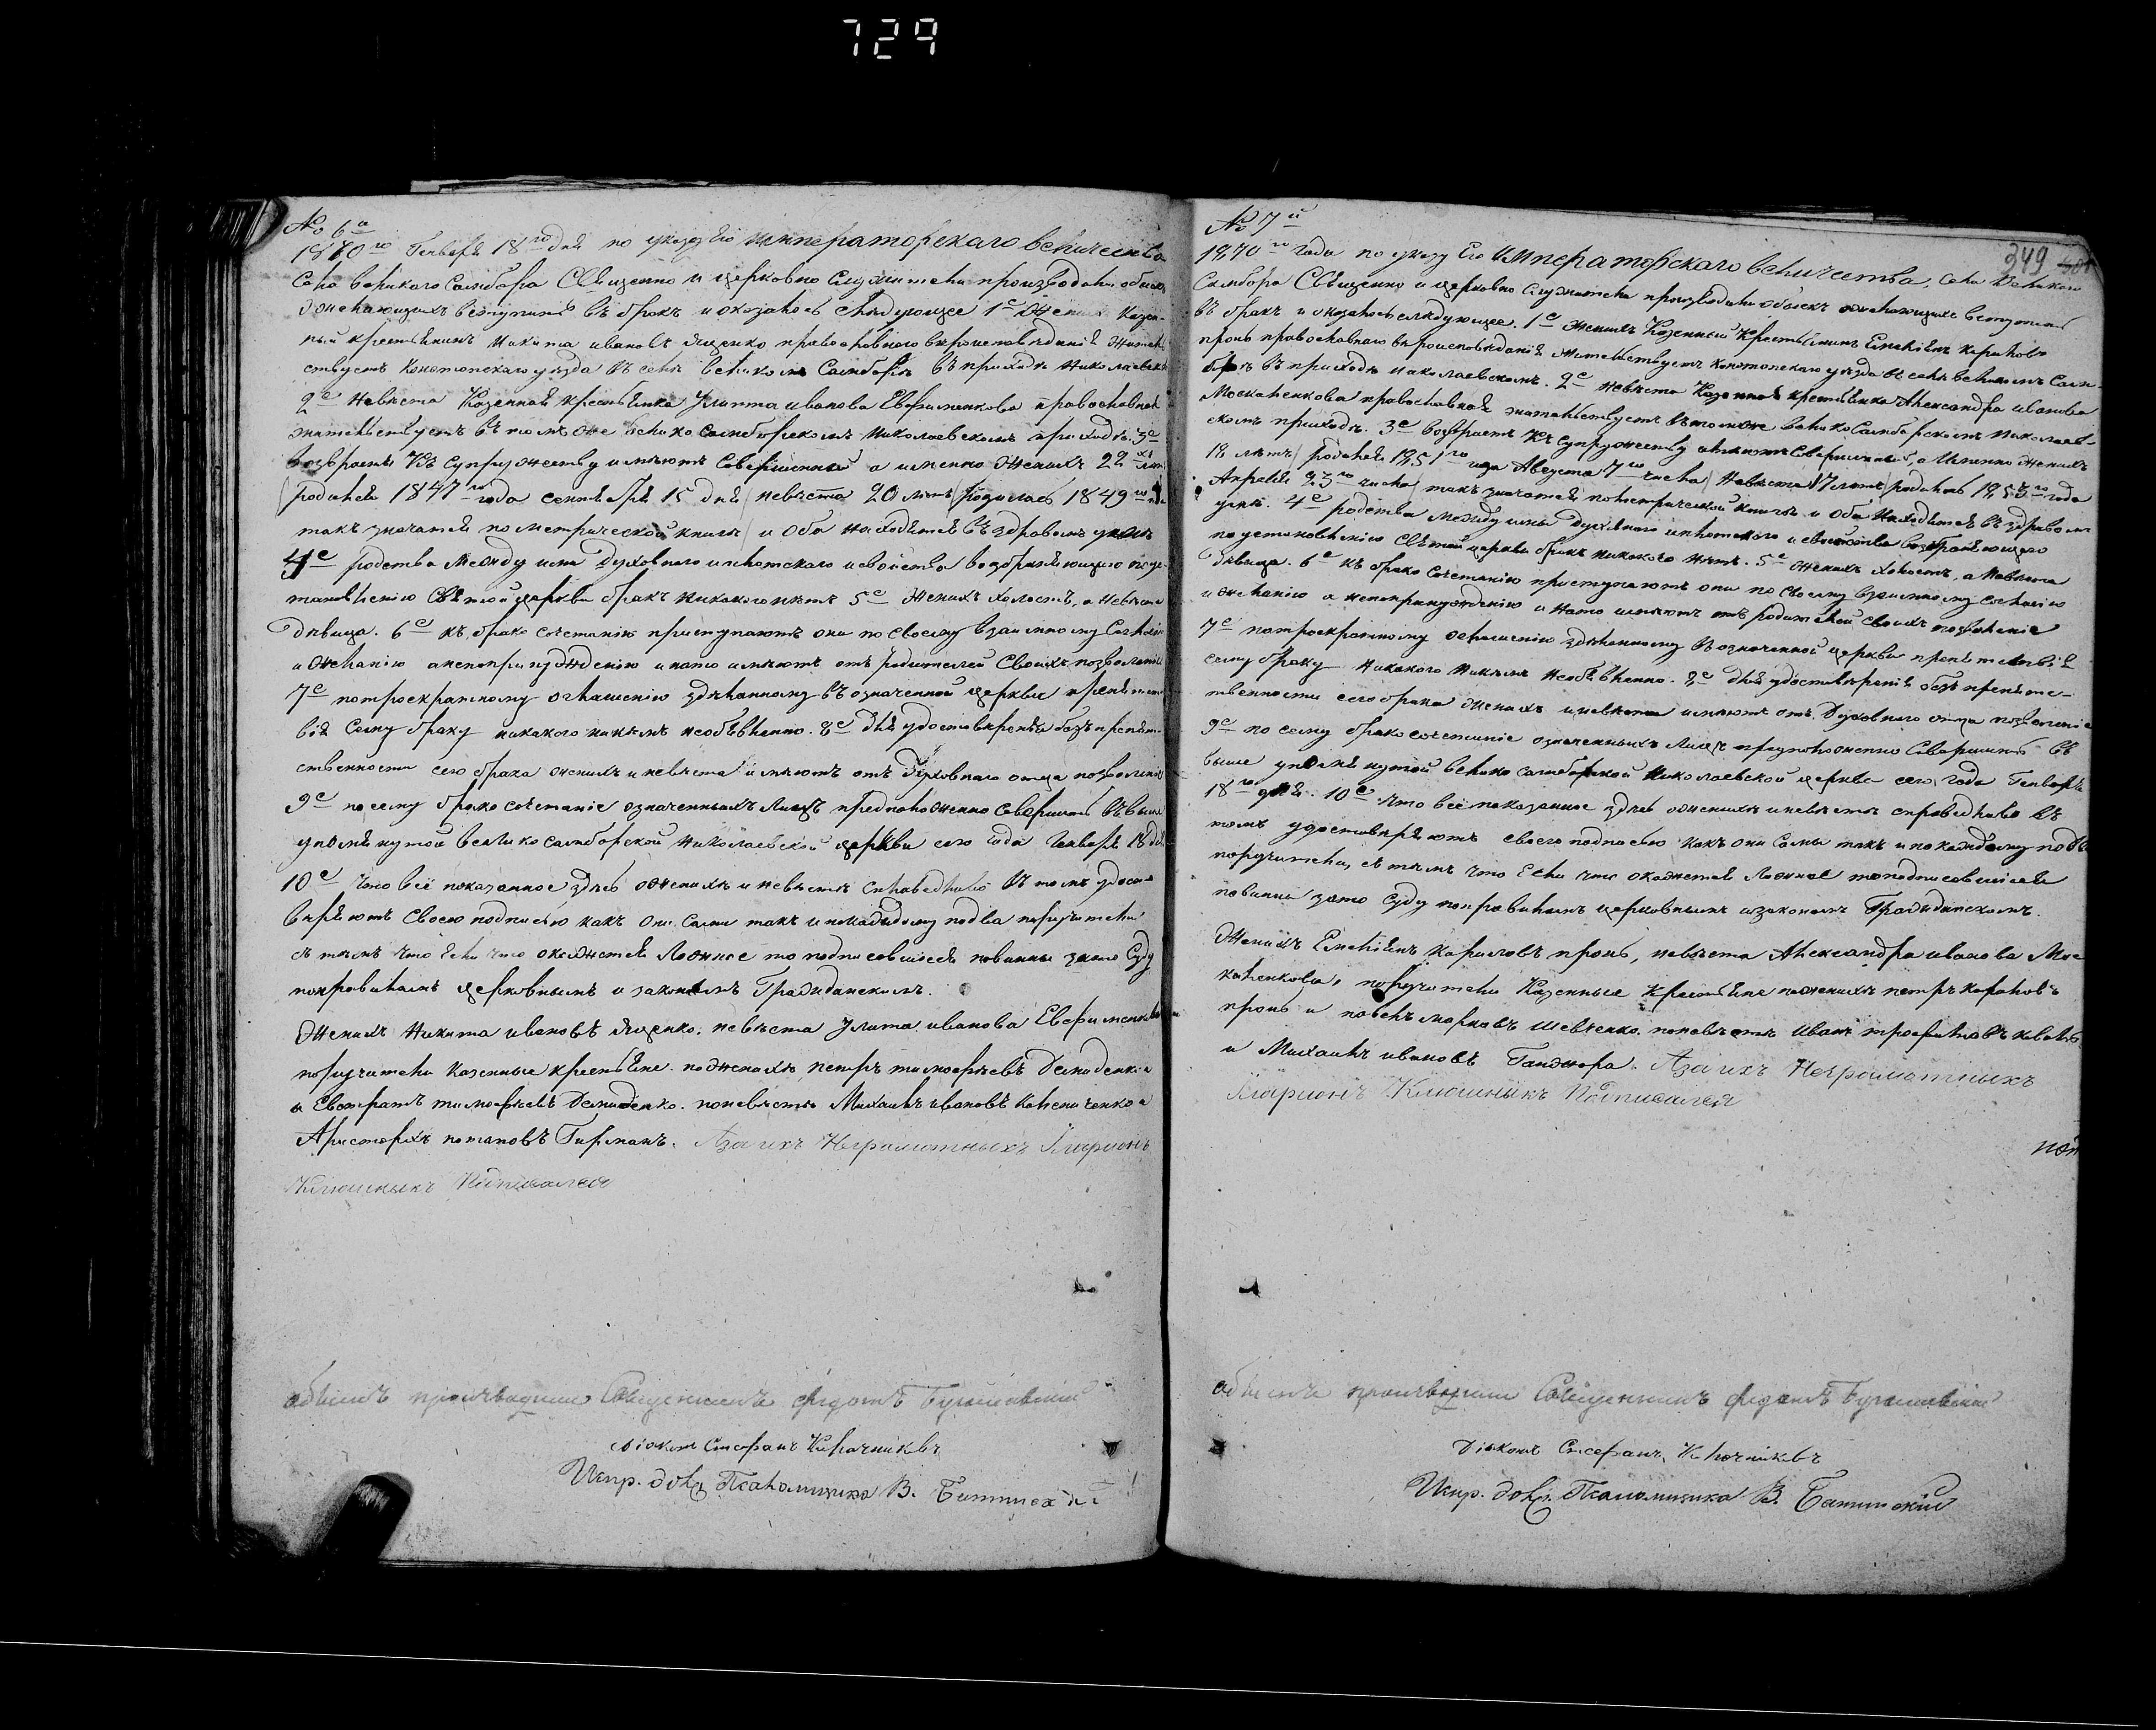 729
№ 6й
1870го Генваря 18го дня по указу Его Императорскаго величества
Села великаго Самбора Священно и церковно служители производили обыскъ
о желающихъ вступить въ бракъ и оказалось следующее 1е Женихъ Казен-
ный крестьянинъ Никита ивановъ Яценко православнаго вероисповеданія жительствуетъ
Конотопскаго уезда въ селе великомъ Самборе въ приходе николаевскомъ
2е невеста Казенная крестьянка Улита иванова Евфименкова православная
жительствуетъ въ томъ же велико Самборскомъ николаевскомъ приходе. 3е
возврастъ Къ супружеству имеютъ совершенный а именно Женихъ 22хъ летъ
(родился 1847го года сентября 15 дня) невеста 20 летъ (родилась 1849го года
такъ значатся по метрической книге) и оба находятся въ здравомъ уме
4е родства между ими Духовнаго и плотскаго и свойства возбраняющаго по ус-
тановленію Святой церкви бракъ никакого нетъ 5е Женихъ холостъ, а невеста
Девица. 6е къ брако сочетанію приступаютъ они по своему взаимному согласію
и желанію а не по принужденію и на то имеютъ отъ родителей своихъ позволеніе
7е по троекратному оглашенію зделанному въ означенной церкви препятст-
вія сему браку никакого никемъ необъявленно. 8е Для удостоверенія безпрепят-
ственности сего брака женихъ и невеста имеютъ отъ Духовнаго отца позволеніе
9е по сему брако сочетаніе означенныхъ лицъ предположенно Совершить въ выше
упомянутой велико самборской николаевской церкви сего года Генваря 18 дня
10е Что всё показанное здесь о женихе и невесте справедливо въ томъ удосто-
веряютъ своею подписью какъ они сами такъ и по каждому по два поручителя
съ темъ что если что окажется Ложное то подписовшіеся повинны за то суду
по правиламъ церковнымъ и законамъ Гражданскимъ.
Женихъ Никита ивановъ Яценко, невеста Улита иванова Евфименкова
поручители казенные крестьяне. по женихе петръ тимофеевъ Демиденко
и Евстратъ тимофеевъ Демиденко. по невесте Михаилъ ивановъ Коленченко и
Аристархъ потаповъ Гирманъ. А за ихъ Неграмотныхъ Иларионъ
Ключныкъ Подписался
обыскъ производили Священникъ федотъ Бугославскій
діаконъ Стефанъ Ключниковъ
Испр. долж. Псаломщика В. Батинскій
349
№ 7й
1870го года по указу Его Императорскаго величества, села Великаго
Самбора Священно и церковно служители производили обыскъ о желающихъ вступить
въ бракъ и оказалось следующее. 1е Женихъ Казенный крестьянинъ Емельянъ кириловъ
пронь православнаго вероисповеданія жительствуетъ конотопскаго уезда въ селе великомъ Сам-
боре въ приходе николаевскомъ. 2е невеста Казенная крестьянка Александра иванова
Москаленкова православная жительствуетъ въ томъ же велико Самборскомъ николаев-
скомъ приходе. 3е возврастъ Къ супружеству имеютъ совершенный, а Именно женихъ
18 летъ (родился 1851го года Августа 7го числа) Невеста 17 летъ (родилась 1853го года
Апреля 23го числа) такъ значатся по метрической книге. и оба находятся въ здравомъ
уме. 4е родства между ими Духовнаго и плотскаго и свойства возбраняющаго
по установленію Святой церкви бракъ никакого нетъ. 5е женихъ холостъ, а невеста
девица. 6е къ брако сочетанію приступаютъ они по своему взаимному согласію
и желанію а не по принужденію и на то имеютъ отъ родителей своихъ позволеніе
7е по троекратному оглашенію зделанному въ означенной церкви препятствія
сему браку никакого никемъ необъявленно. 8е Для удостоверенія безъ препятс-
твенности сего брака женихъ и невеста имеютъ отъ Духовнаго отца позволеніе
9е по сему брако сочетаніе означенныхъ Лицъ предположенно Совершить въ
выше упомянутой велико самборской николаевской церкви сего года Генваря
18го дня. 10е Что всё показанное здесь о женихе и невесте справедливо въ
томъ удостоверяютъ своею подписью какъ они сами такъ и по каждому по два
поручителя, съ темъ что Если что окажется Ложное то подписовшіеся
повинны за то суду по правиламъ церковнымъ и законамъ Гражданскимъ.
Женихъ Емельянъ кириловъ пронь, невеста Александра иванова Мос-
каленкова, поручители Казенные Крестьяне по женихе петръ карповъ
пронь и павелъ марковъ шевченко. по невесте иванъ трофимовъ коваль
и Михаилъ ивановъ Ганджара. А за ихъ Неграмотныхъ
Иларионъ Ключныкъ Подписался
обыскъ производили Священникъ федотъ Бугославскій
діаконъ Стефанъ Ключниковъ
Испр. долж. Псаломщика В. Батинскій